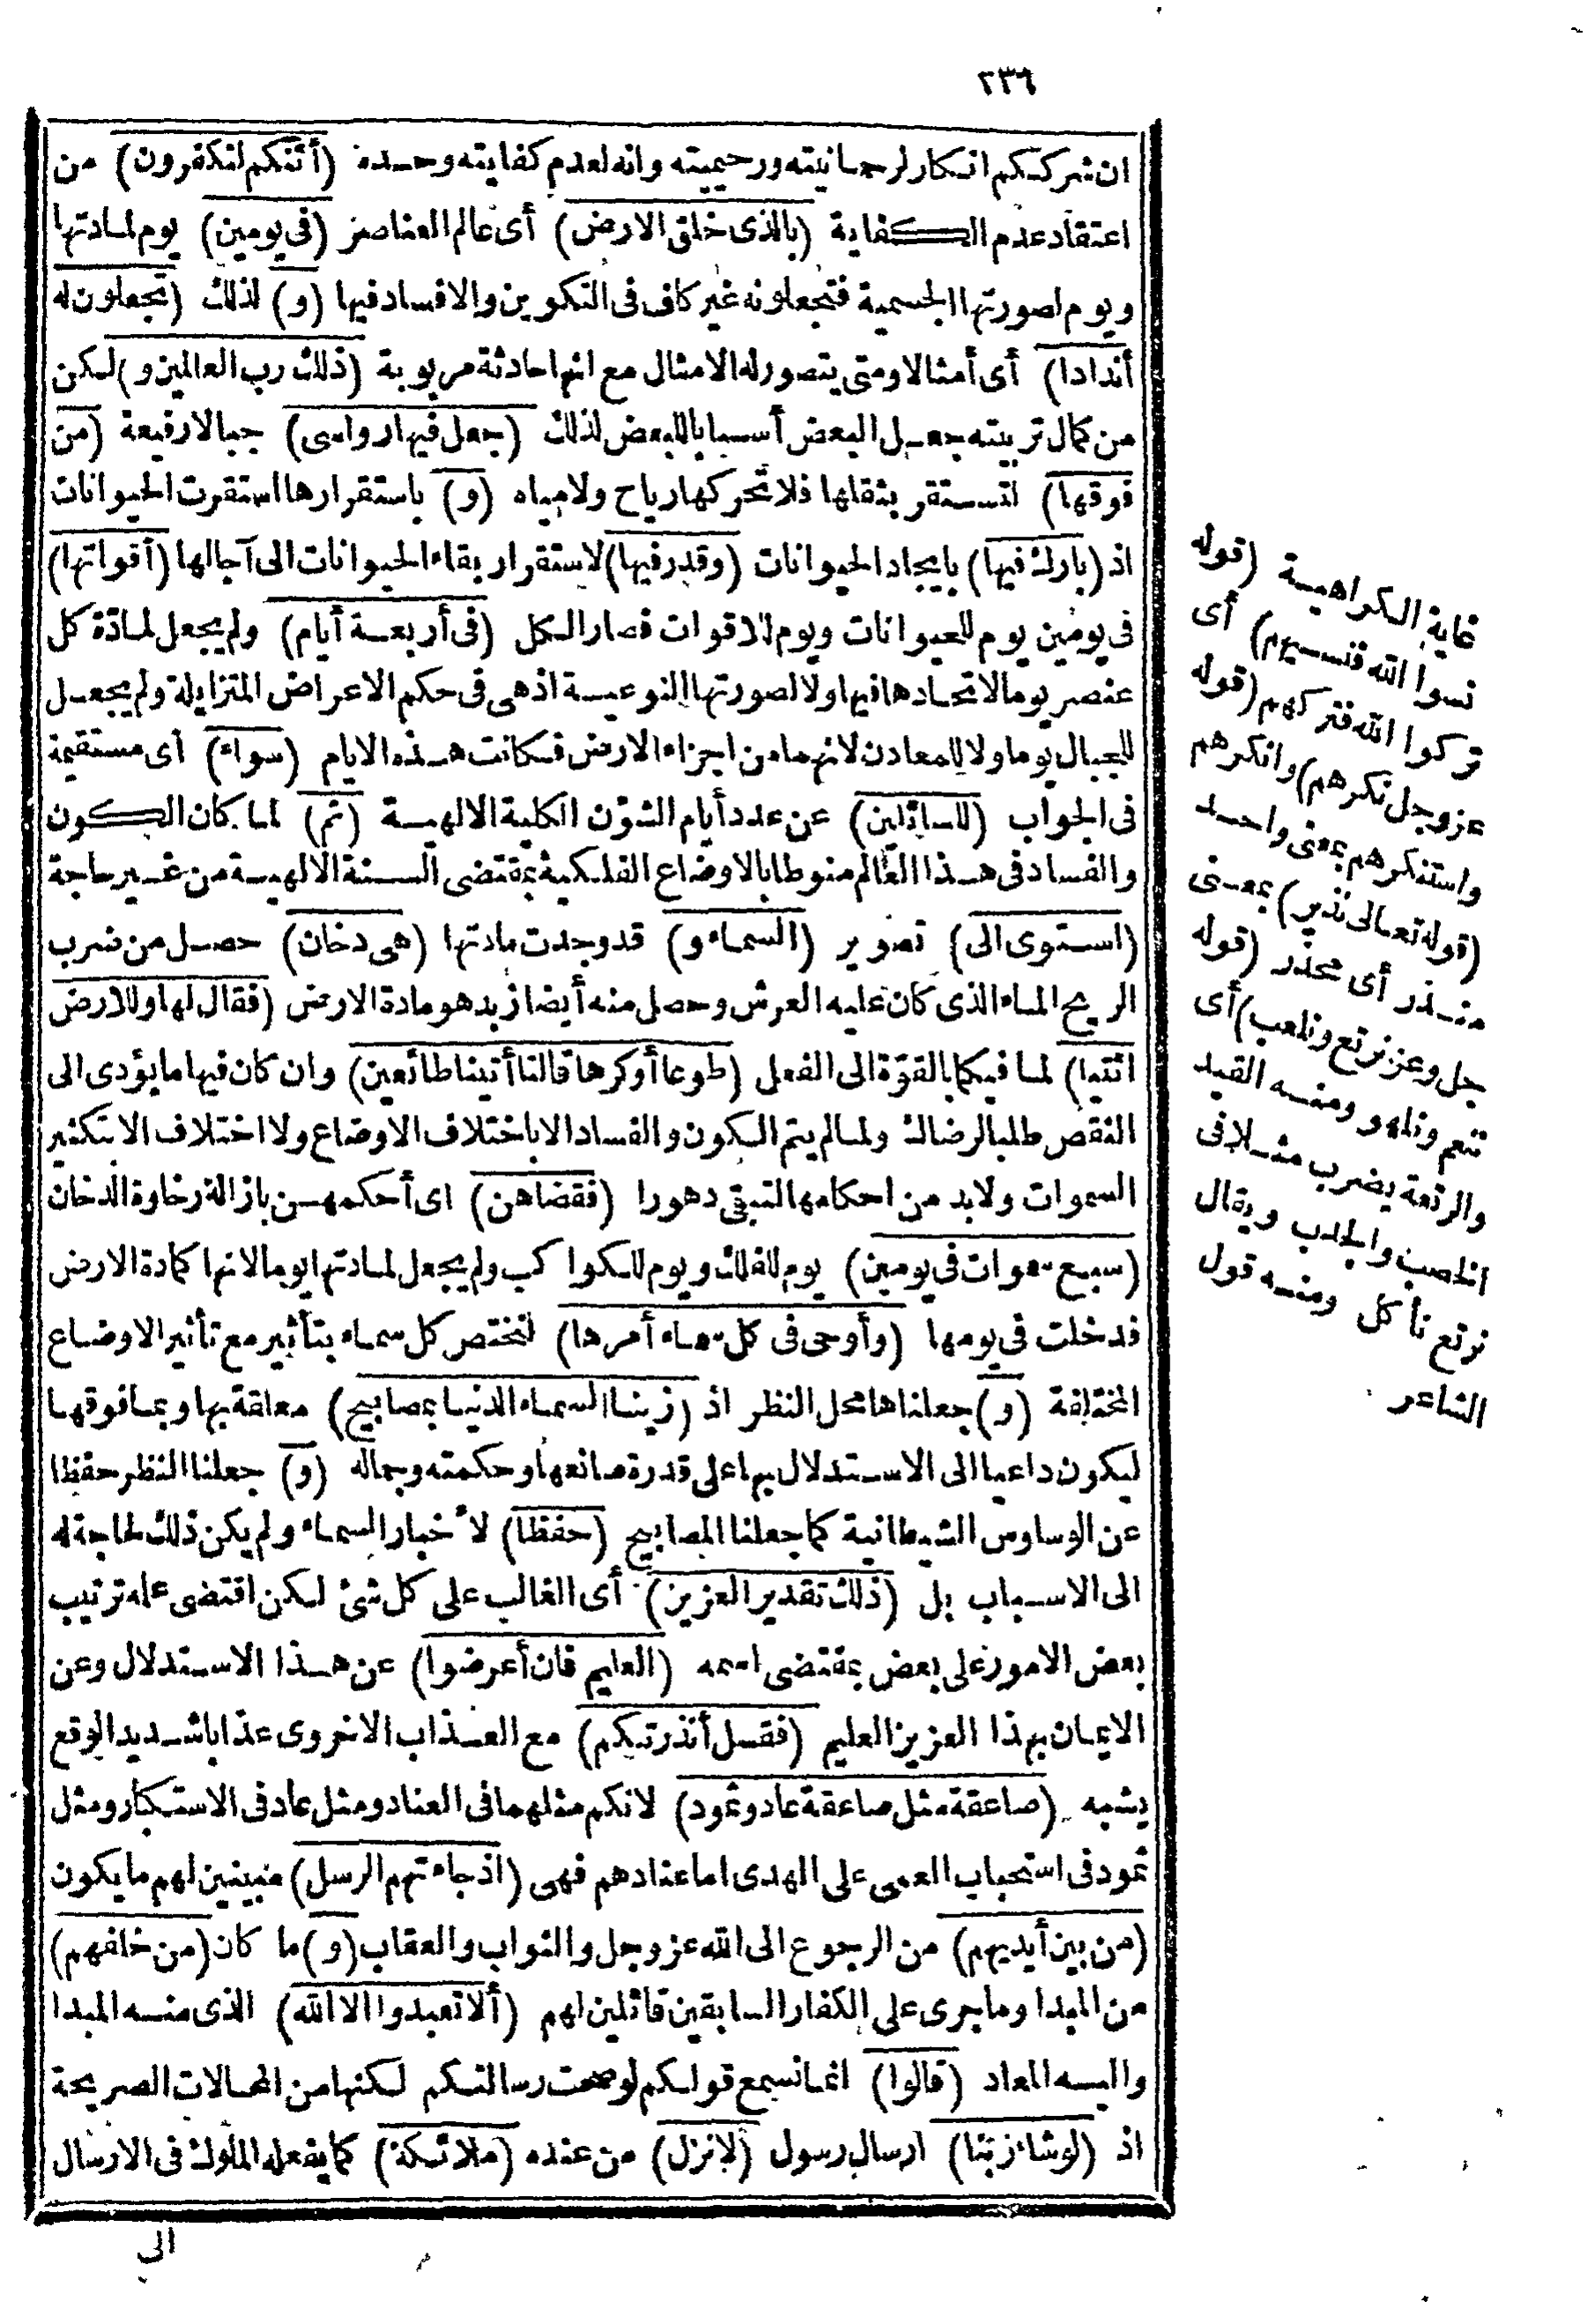 ٢٣٦
ان شرككم انكار لرحمانيته ورحيميته وانه لعدم كفايته وحده (أئنكم لتكفرون) من
اعتقاد عدم الكفاية (بالذى خلق الارض) أى عالم العناصر (فى يومين) يوم لمادتها
ويوم لصورتها الجسمية فتجعلونه غير كاف فى التكوين والافساد فيها (و) لذلك (تجعلون له
أندادا) أى أمثالا ومتى يتصور له الامثال مع انها حادثة مربوبة (ذلك رب العالمين و) لكن
من كمال تربيته جعل البعض أسبابا للبعض لذلك (جعل فيها رواسى) جبالا رفيعة (من
فوقها) لتستقر بثقلها فلا تحركها رياح ولا مياه (و) باستقرارها استقرت الحيوانات
اذ (بارك فيها) بايجاد الحيوانات (وقدر فيها) لاستقرار بقاء الحيوانات الى آجالها (أقواتها)
فى يومين يوم للحيوانات ويوم للاقوات فصار الكل (فى أربعة أيام) ولم يجعل لمادّة كل
عنصر يوما لاتحادها فيها ولا لصورتها النوعية اذ هى فى حكم الاعراض المتزايلة ولم يجعل
للجبال يوما ولا للمعادن لانهما من اجزاء الارض فكانت هذه الايام (سواء) أى مستقيمة
فى الجواب (للسائلين) عن عدد أيام الشؤن الكلية الالهية (ثم) لما كان الكون
والفساد فى هذا العالم منوطا بالاوضاع الفلكية بمقتضى السنة الالهية من غير حاجة
(استوى الى) تصوير (السماء و) قد وجدت مادتها (هى دخان) حصل من ضرب
الريح الماء الذى كان عليه العرش وحصل منه أيضا زبد هو مادة الارض (فقال لها وللارض
ائتيا) لما فيكما بالقوّة الى الفعل (طوعا أو كرها قالتا أتينا طائعين) وان كان فيها ما يؤدى الى
النقص طلبا لرضاك ولما لم يتم الكون والفساد الا باختلاف الاوضاع ولا اختلاف الا بتكثير
السموات ولا بد من احكامها لتبقى دهورا (فقضاهن) اى أحكمهن بازالة رخاوة الدخان
(سبع سموات فى يومين) يوم للفلك ويوم للكواكب ولم يجعل لمادتها يوما لانها كمادة الارض
فدخلت فى يومها (وأوحى فى كل سماء أمرها) لتختص كل سماء بتأثير مع تأثير الاوضاع
المختلفة (و) جعلناها محل النظر اذ (زينا السماء الدنيا بمصابيح) معلقة بها وبما فوقها
ليكون داعيا الى الاستدلال بها على قدرة صانعها وحكمته وجماله (و) جعلنا النظر حفظا
عن الوساوس الشيطانية كما جعلنا المصابيح (حفظا) لأخبار السماء ولم يكن ذلك لحاجة له
الى الاسباب بل (ذلك تقدير العزيز) أى الغالب على كل شئ لكن اقتضى علمه ترتيب
بعض الامور على بعض بمقتضى اسمه (العليم فان أعرضوا) عن هذا الاستدلال وعن
الايمان بهذا العزيز العليم (فقل أنذرتكم) مع العذاب الاخروى عذابا شديد الوقع
يشبه (صاعقة مثل صاعقة عاد وثمود) لانكم مثلهما فى العناد ومثل عاد فى الاستكبار ومثل
ثمود فى استحباب العمى على الهدى اما عنادهم فهى (اذ جاءتهم الرسل) مبينين لهم ما يكون
(من بين أيديهم) من الرجوع الى الله عز وجل والثواب والعقاب (و) ما كان (من خلفهم)
من المبدا وما جرى على الكفار السابقين قائلين لهم (ألا تعبدوا الا الله) الذى منه المبدا
واليه المعاد (قالوا) انما نسمع قولكم لو صحت رسالتكم لكنها من المحالات الصريحة
اذ (لو شاء ربنا) ارسال رسول (لانزل) من عنده (ملائكة) كما يفعله الملوك فى الارسال
الى
غاية الكراهية (قوله
نسوا الله فنسيهم) أى
تركوا الله فتركهم (قوله
عز وجل نكرهم) وانكرهم
واستنكرهم بمعنى واحد
(قوله تعالى نذير) بمعنى
منذر أى محذر (قوله
جل وعز نرتع ونلعب) أى
ننعم ونلهو ومنه القيد
والرتعة يضرب مثلا فى
الخصب والجدب ويقال
نرتع نأكل ومنه قول
الشاعر